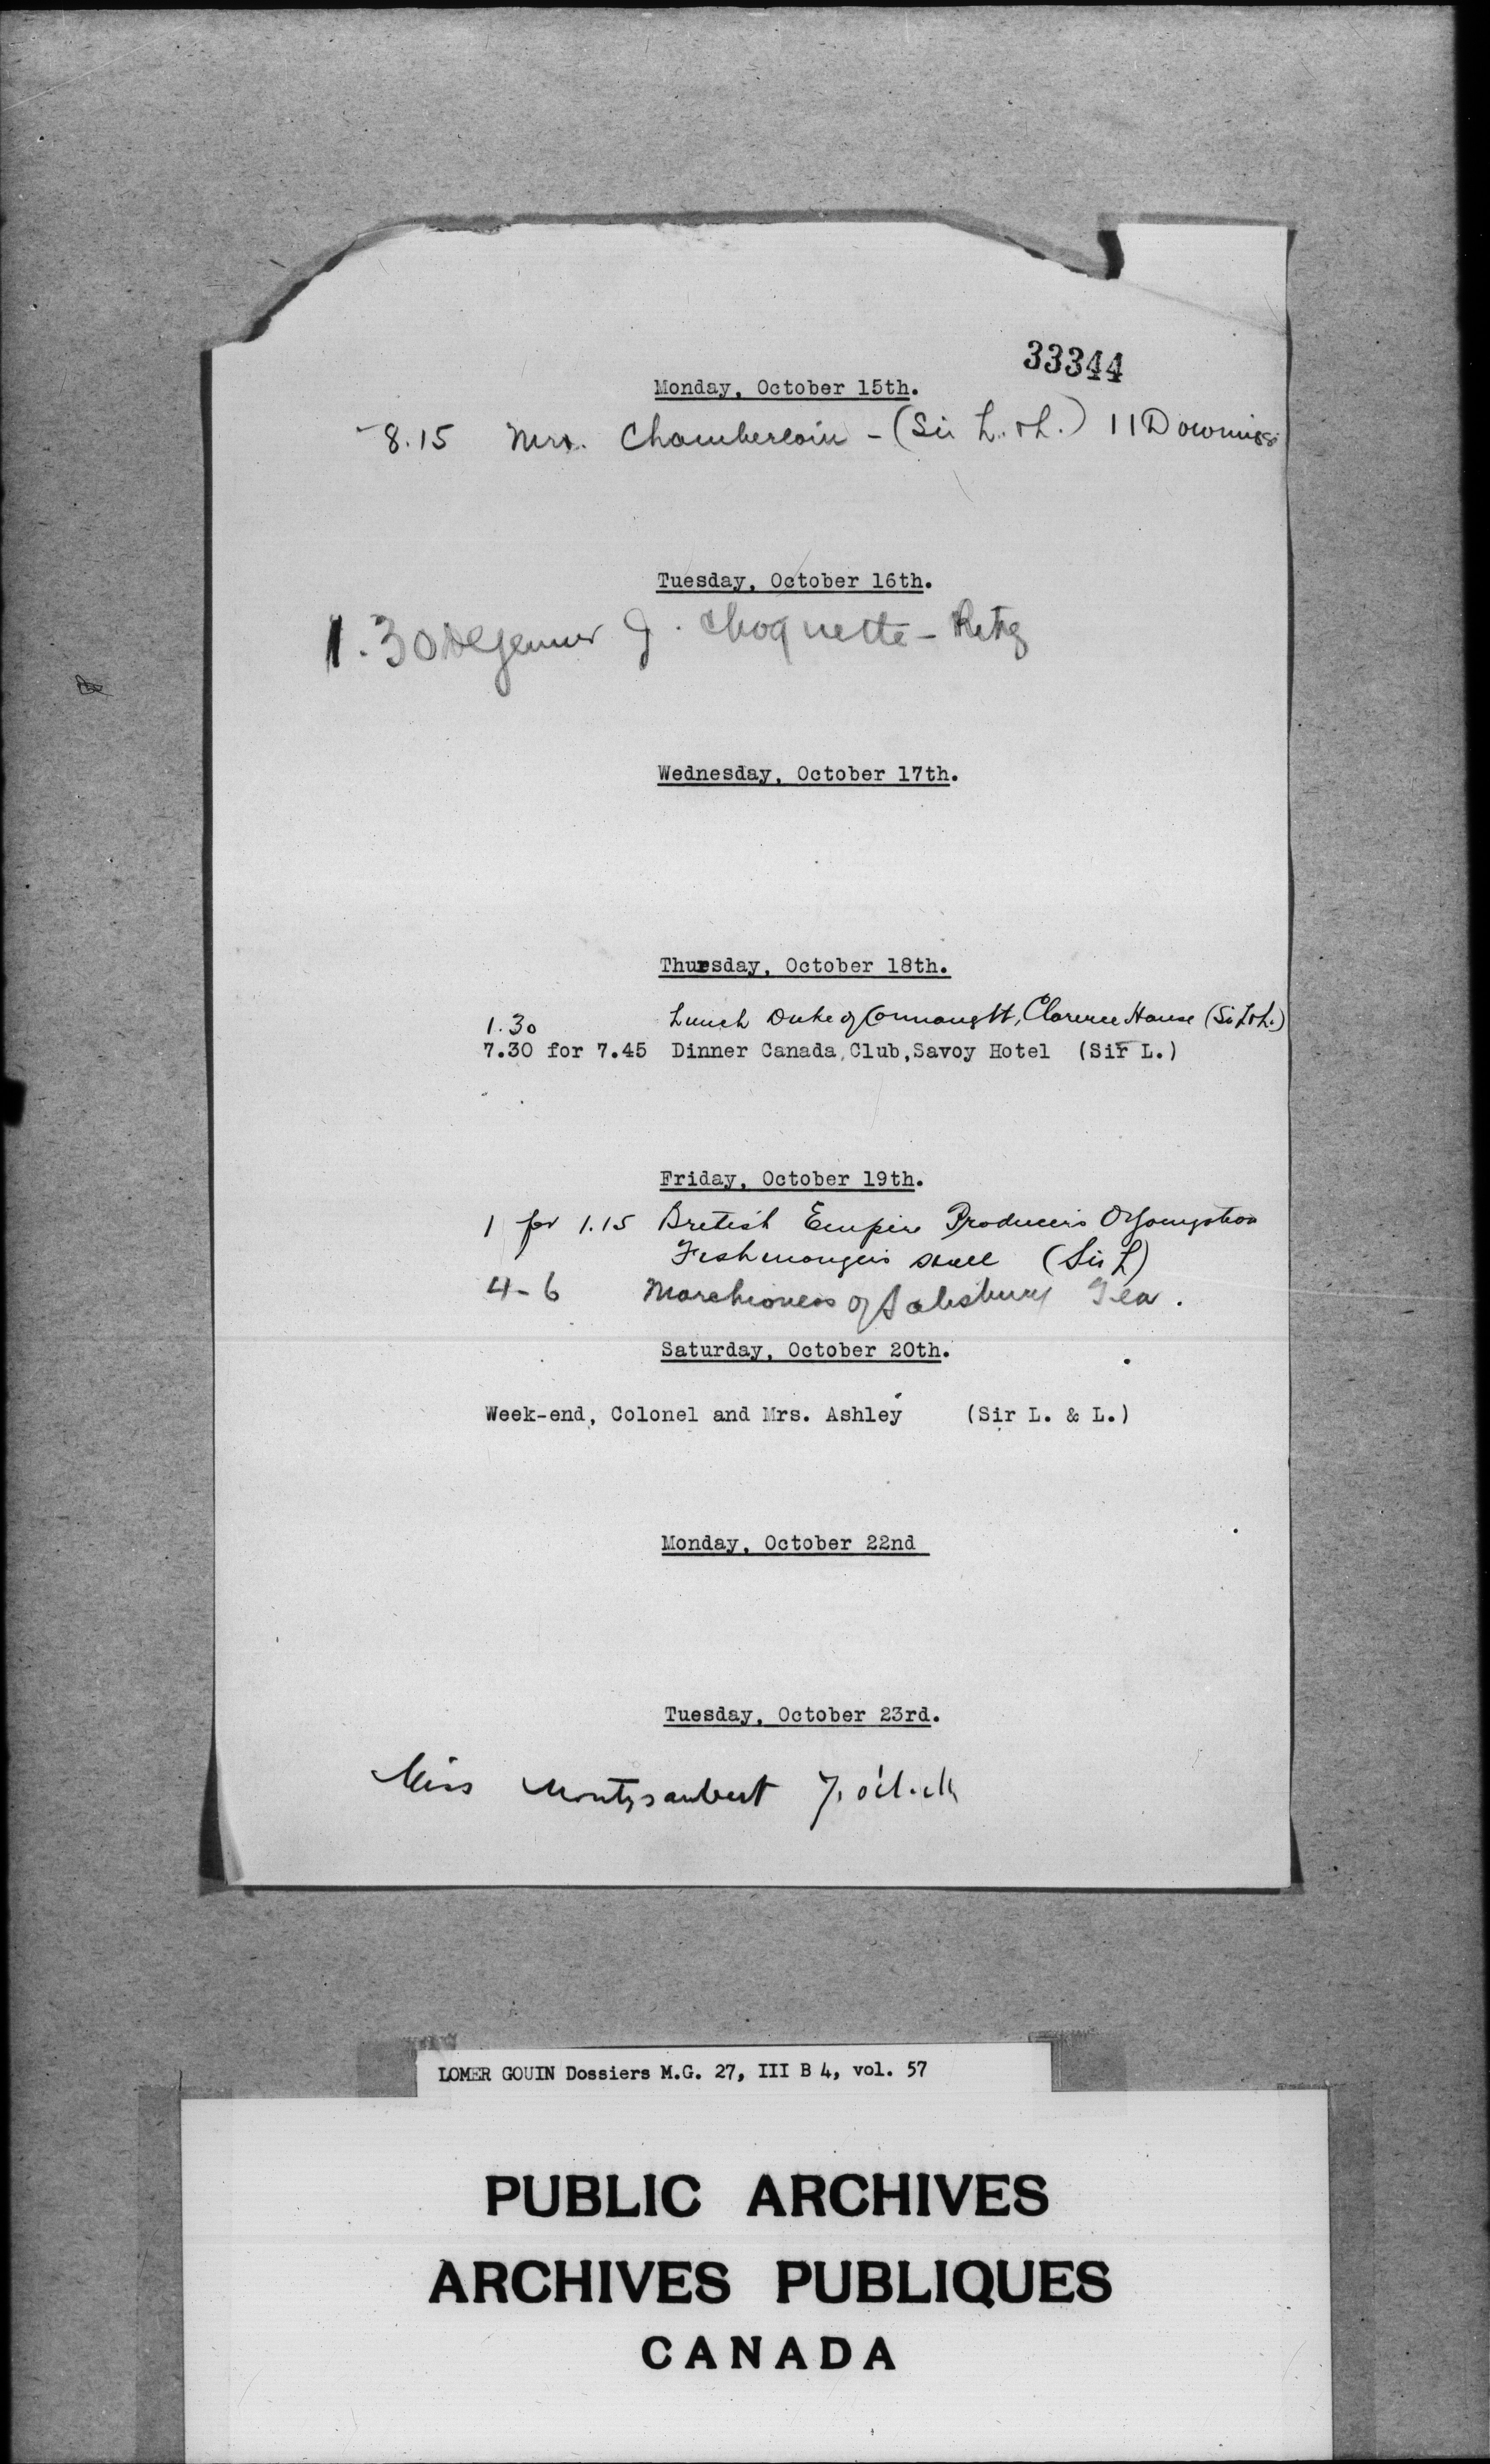 33344
Monday, October 15th.
8.15 Mrs. Chamberlain - (Sir L. & L.) 11 Downing
Tuesday, October 16th.
1.30 Dejeuner J. Choquette - Ritz
Wednesday, October 17th.
Thursday, October 18th.
1.30 Lunch Duke of Connaught, Clarence House (Sir L & L.)
7.30 for 7.45 Dinner Canada Club, Savoy Hotel (Sir L.)
Friday, October 19th.
1 for 1.15 British Empire Producers Organization
Fishmongers Hall (Sir L)
4-6 Marchioness of Salisbury Tea.
Saturday, October 20th.
Week-end, Colonel and Mrs. Ashley (Sir L. & L.)
Monday, October 22nd
Tuesday, October 23rd.
Miss Montizambert
LOMER GOUIN Dossiers M.G. 27, III B 4, vol. 57
PUBLIC ARCHIVES
ARCHIVES PUBLIQUES
CANADA